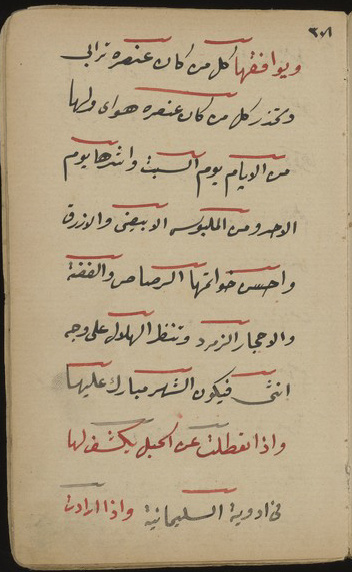 ٣٠٨
ويوافقها كل من كان عنصره ترابي
وتحذر كل من كان عنصره هواى ولها
من الايام يوم السبت واشدها يوم
الاحد ومن الملبوس الابيض والازرق
واحسن خواتمها الرصاص والفضة
والاحجار الزمرد وتنظر الهلال على وجه
انثى فيكون الشهر مبارك عليها
واذا تعطلت عن الحبل يكشف لها
فى ادوية السليمانية واذا ارادت